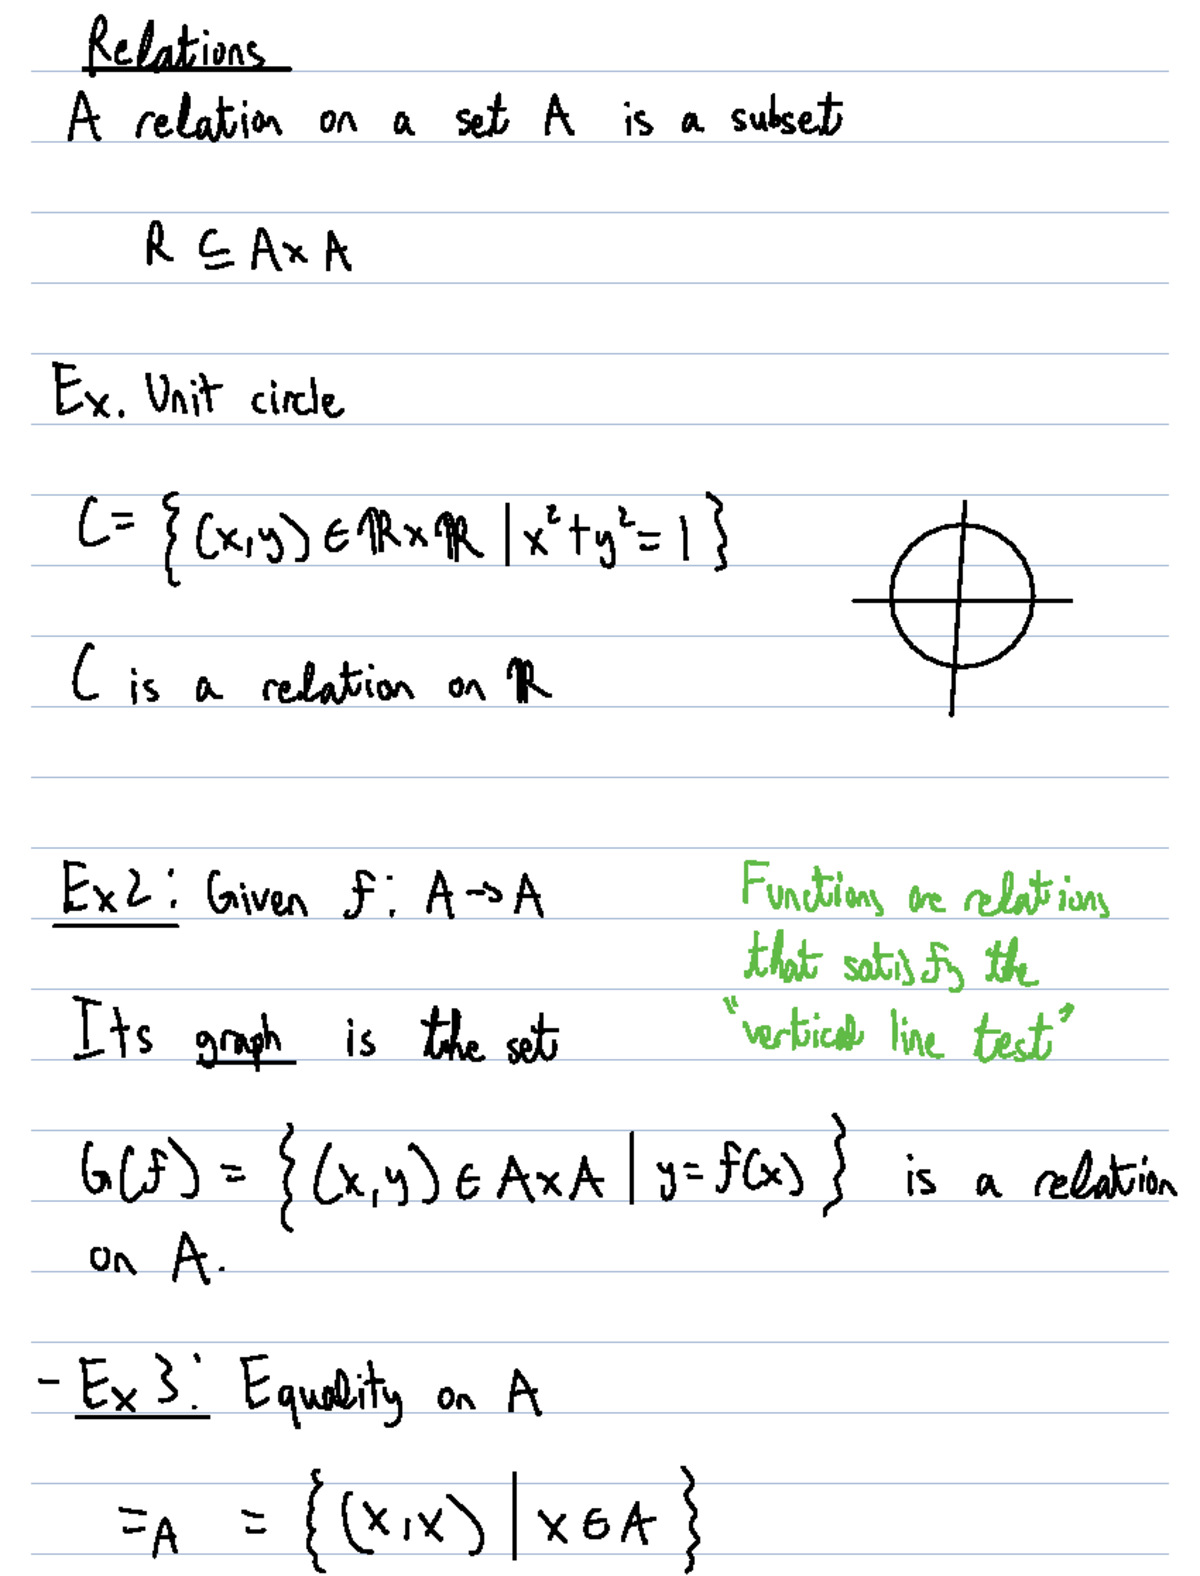 Relations
A relation on a set A is a subset
R ⊆ A×A
Ex. Unit circle
C= {(x,y) ∈ ℝ×ℝ | x²+y²= 1}
C is a relation on ℝ
Ex2: Given f: A→A
Functions are relations
that satisfy the
"vertical line test"
Its graph is the set
G(f) = {(x,y) ∈ A×A | y= f(x)} is a relation
on A.
- Ex 3: Equality on A
=_A = {(x,x) | x∈A}